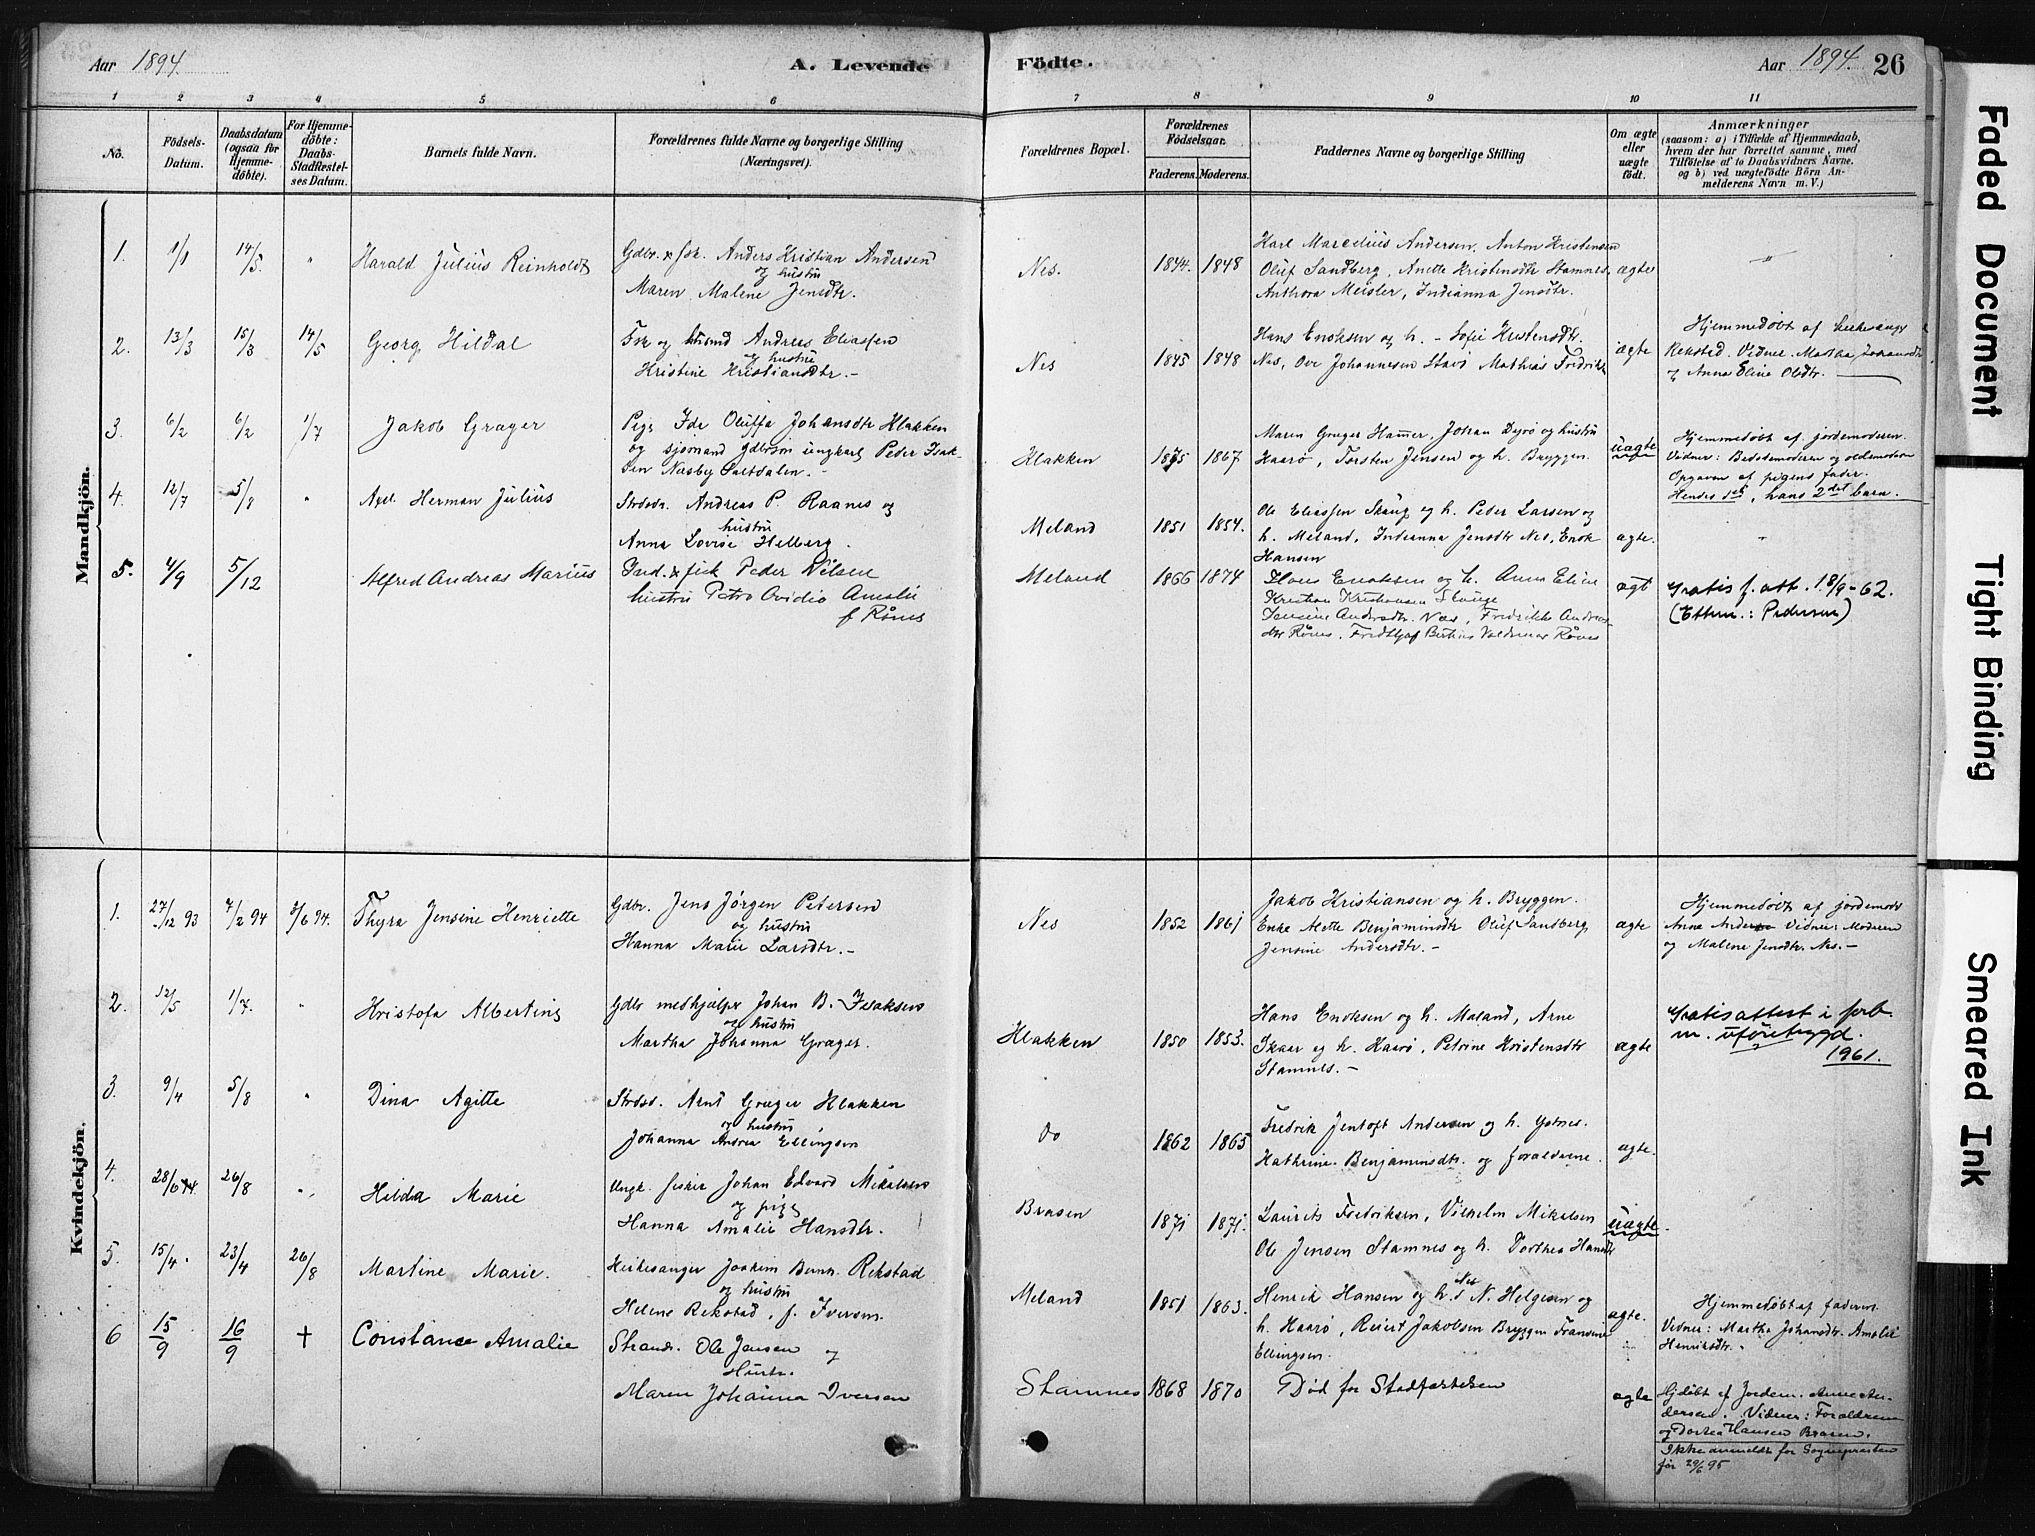 Aar 1894.
A. Levende Födte.
Aar 1894.
26
1 2 3 4 5 6 7 8 9 10 11
No.
Födsels-
Datum.
Daabsdatum
(ogsaa for
Hjemme-
döbte).
For Hjemme-
döbte:
Daabs-
Stadfæstel-
ses Datum.
Barnets fulde Navn.
Forældrenes fulde Navne og borgerlige Stilling
(Næringsvei).
Forældrenes Bopæl.
Forældrenes
Födselsaar.
Faderens. Moderens.
Faddernes Navne og borgerlige Stilling
Om ægte
eller
uægte
födt.
Anmærkninger
(saasom: a) i Tilfælde af Hjemmedaab,
hvem der har forrettet samme, med
Tilföielse af to Daabsvidners Navne.
og b) ved uægtefödte Börn An-
melderens Navn m. V.)
Mandkjön.
1. 1/1 14/5. "
Harald Julius Reinholdt
Gdbr. & fsk. Anders Kristian Andersen
og hustru
Maren Malene Jensdtr.
Nes. 1844. 1848
Karl Marcelius Andersen, Anton Kristensen
Oluf Sandberg, Anette Kristensdtr Stamnes,
Anthora Meisler, Indianna Jensdtr.
ægte
"
2. 13/3 15/3 14/5
Georg Hildal
Fsk og husmd Andreas Eliassen
og hustru
Kristine Kristiansdtr. -
Nes 1845 1848
Hans Enoksen og h. - Sofie Kristensdtr.
Nes, Ove Johannesen Mathias Fredriks
ægte
Hjemmedøbt af kirkesanger
Rekstad. Vidner. Martha Johansdtr
og Anna Eline Olsdtr.
3. 6/2 6/2 1/7
Jakob Græger
Pige Ida Oluffa Johansdtr Klakken
og sjømand gdbrsøn ungkarl Peder Isak-
sen Næsby Saltdalen. -
Klakken 1875 1867
Maren Græger Hammer, Johan Dyrø og hustru
Haarø, Torsten Jensen og h. Bryggen.
uægte
Hjemmedøbt af jordemoderen.
Vidner: Bedstemoderen og oldemoderen
Opgaven af pigens fader.
Hendes 1ste, hans 2det barn.
4. 12/7 5/8 "
Axel Herman Julius
Strdsdr. Andreas P. Raanes og
hustru
Anna Lovise Helberg.
Meland 1851 1854.
Ole Eliassen Skaug og h. Peder Larsen og
h. Meland, Indianna Jensdtr Nes, Enok
Hansen
ægte.
"
5. 4/9 5/12
Alfred Andreas Marius
Ind. & fisk Peder Nilsen
hustru Petra Ovidia Amalie
f Rønes
Meland 1866 1874
Hans Enoksen og h. Anna Eline
Kristian Kristiansen Skauge
Jensine Andersdtr. Næs, Fredrikke Andreas-
dtr Rønes. Fredthjof Bertius Valdemar Rønes
ægt
Gratis f. att. 18/9-62.
(Ettern.: Pedersen)
Kvindekjön.
1. 27/12 93 7/2 94 3/6 94.
Thyra Jensine Henriette
Gdbr. Jens Jørgen Petersen
og hustru
Hanna Marie Larsdtr. -
Nes 1852 1861
Jakob Kristiansen og h. Bryggen.
Enke Alette Benjaminsdtr Oluf Sandberg
Jensine Andersdtr. -
ægte
Hjemmedøbt af jordemodr
Anne Anderse Vidner: Moderen
og Malene Jensdtr. Nes. -
2. 12/5 1/7. "
Kristofa Albertine
Gdbr medhjælper Johan B. Isaksen
og hustru
Martha Johanna Græger.
Klakken 1850 1853.
Hans Enoksen og h. Meland, Arne
Skaar og h. Haarø, Petrine Kristensdtr
Stamnes. -
ægte
Gratisattest i forb.
m. uføretrygd.
1961.
3. 9/4 5/8 "
Dina Agitte
Strdsd. Arnt Græger Klakken
og hustru
Johanna Andrea Ellingsen
Do 1862 1865
Fredrik Jentoft Andersen og h.
Kathrine Benjaminsdtr. og forældrene.
ægte.
4. 28/6 94. 26/8 "
Hilda Marie
Ungk. fisker Johan Edvard Mikalsen
og pige
Hanna Amalie Hansdtr.
Brasen 1871 1871.
Laurits Fredriksen, Vilhelm Mikalsen
Ole Jensen Stamnes og h. Dorthea Hansdtr
uægte.
5. 15/4. 23/4 26/8
Martine Marie.
Kirkesanger Joakim Bernh. Rekstad
og hustru
Helene Rekstad, f. Iversen.
Meland 1851 1863.
Henrik Hansen og h. Nes N. Helgesen og
h. Haarø, Reiert Jakobsen Bryggen Fransine
Ellingsen.
ægte.
Hjemmedøbt af faderen.
Vidner: Martha Johansdtr. Amalie
Henriksdtr.
6 15/9 16/9 †
Constance Amalie
Strands. Ole Jensen og
Hustr.
Maren Johanna Iversen
Stamnes 1868 1870
Død før Stadfæstelsen
ægte
Hjdøbt af Jordem. Anne An-
dersen. Vidner: Forældrene
og Dortea Hansen Brasen.
Ikke anmeldt for Sognepresten
før 29/6 95
Faded Document
Tight Binding
Smeared Ink